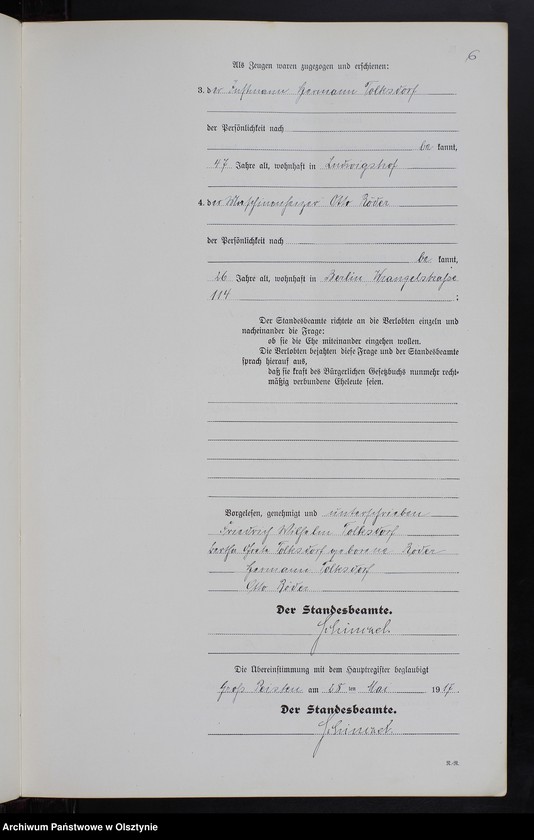 6
Als Zeugen waren zugezogen und erschienen:
3. der Instmann Hermann Tolksdorf
der Persönlichkeit nach
be kannt,
47 Jahre alt, wohnhaft in Ludwigshof
4. der Maschinenheizer Otto Röder
der Persönlichkeit nach
be kannt,
26 Jahre alt, wohnhaft in Berlin Wrangelstraße
114 ;
Der Standesbeamte richtete an die Verlobten einzeln und
nacheinander die Frage:
ob sie die Ehe miteinander eingehen wollen.
Die Verlobten bejahten diese Frage und der Standesbeamte
sprach hierauf aus,
daß sie kraft des Bürgerlichen Gesetzbuchs nunmehr recht-
mäßig verbundene Eheleute seien.
Vorgelesen, genehmigt und unterschrieben
Friedrich Wilhelm Tolksdorf
Tolksdorf geborene Röder
Hermann Tolksdorf
Otto Röder
Der Standesbeamte.
Die Übereinstimmung mit dem Hauptregister beglaubigt
Groß Peisten am 28 ten Mai 19
Der Standesbeamte.
Archiwum Państwowe w Olsztynie